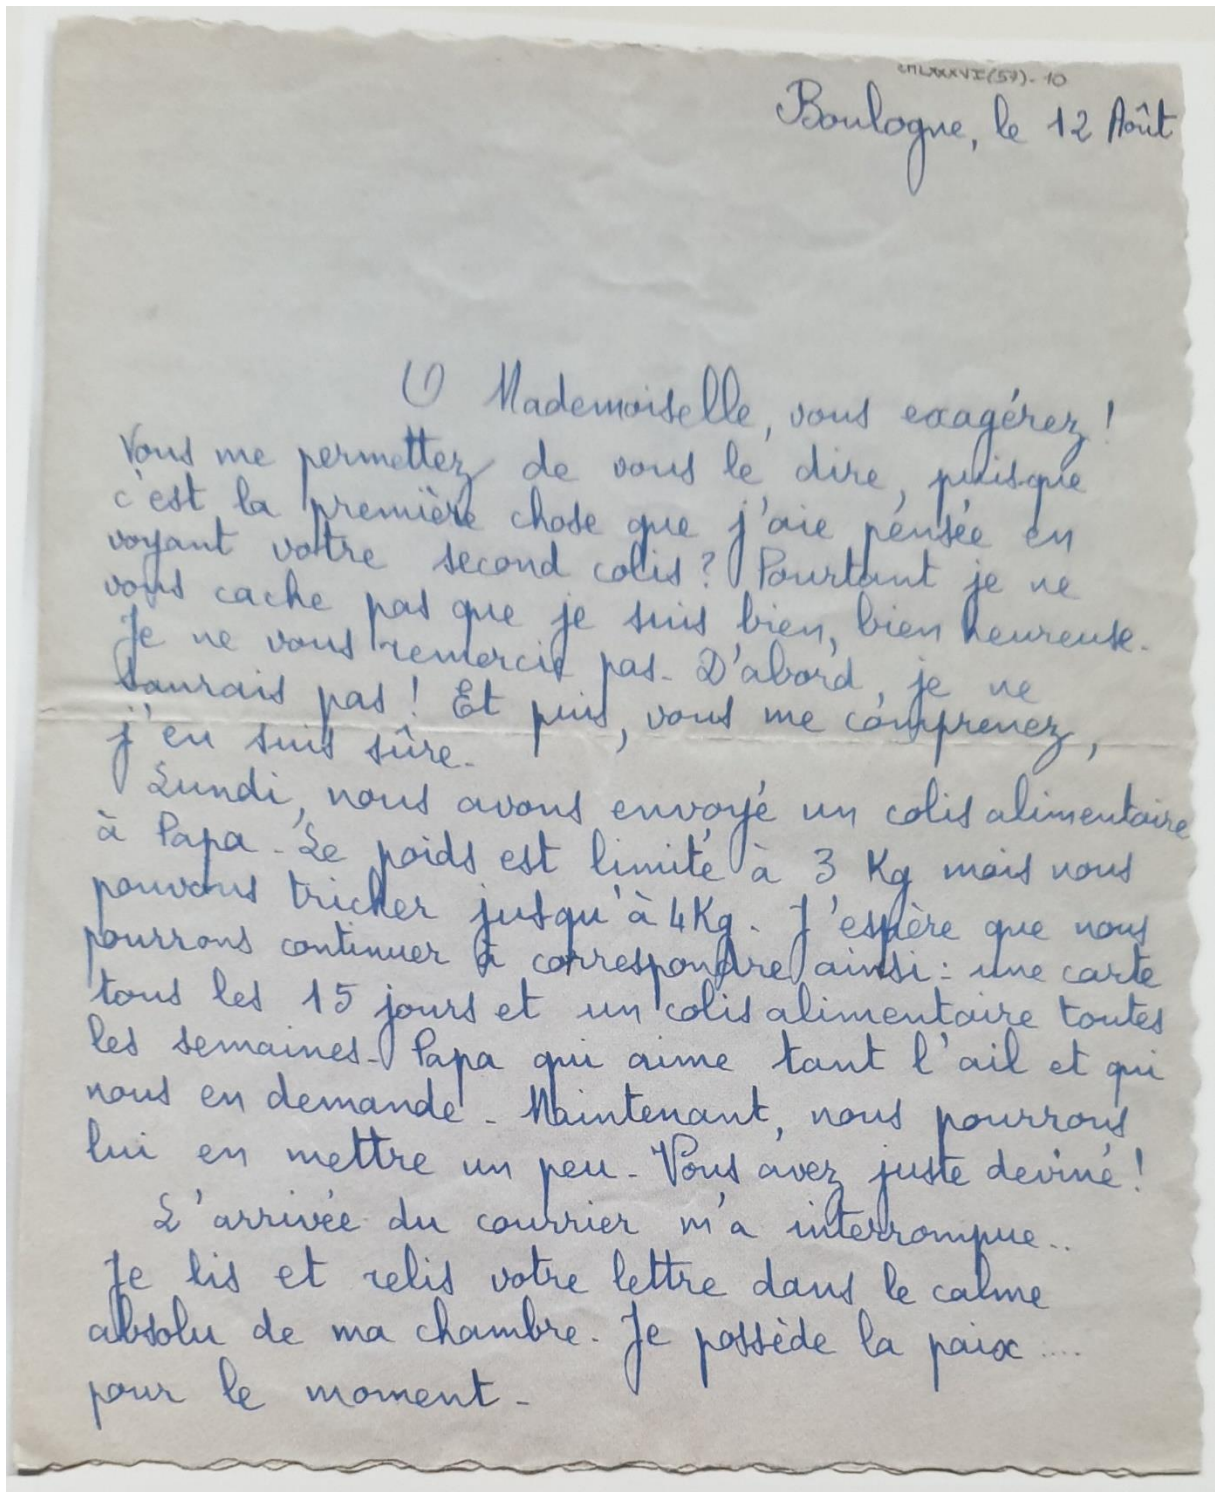 (57)-10
Boulogne, le 12 Août
O Mademoiselle, vous exagérez !
Vous me permettez de vous le dire, puisque
c'est la première chose que j'aie pensée en
voyant votre second colis ? Pourtant je ne
vous cache pas que je suis bien, bien heureuse.
Je ne vous remercie pas. D'abord, je ne
saurais pas ! Et puis, vous me comprenez,
j'en suis sûre.
Lundi, nous avons envoyé un colis alimentaire
à Papa. Le poids est limité à 3 Kg mais nous
pouvons tricher jusqu'à 4 Kg. J'espère que nous
pourrons continuer à correspondre ainsi : une carte
tous les 15 jours et un colis alimentaire toutes
les semaines. Papa qui aime tant l'ail et qui
nous en demande. Maintenant, nous pourrons
lui en mettre un peu. Vous avez juste deviné !
L'arrivée du courrier m'a interrompue..
Je lis et relis votre lettre dans le calme
absolu de ma chambre. Je possède la paix ....
pour le moment.